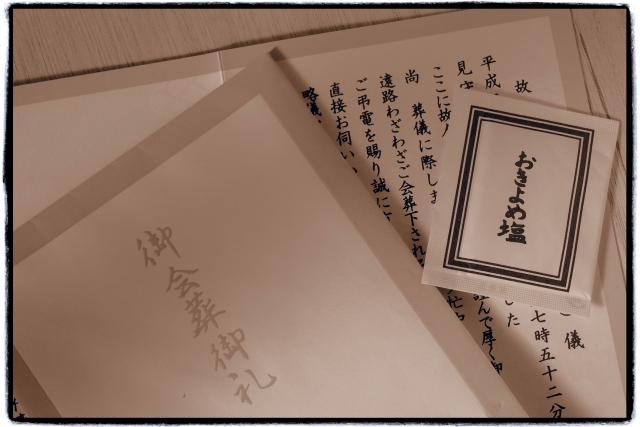 おきよめ塩
御会葬御礼
故
儀
平成
七時五十二分
見
ここに故
尚 葬儀に際しま
遠路わざわざご会葬下され
ご弔電を賜り誠に
直接お伺い
略儀